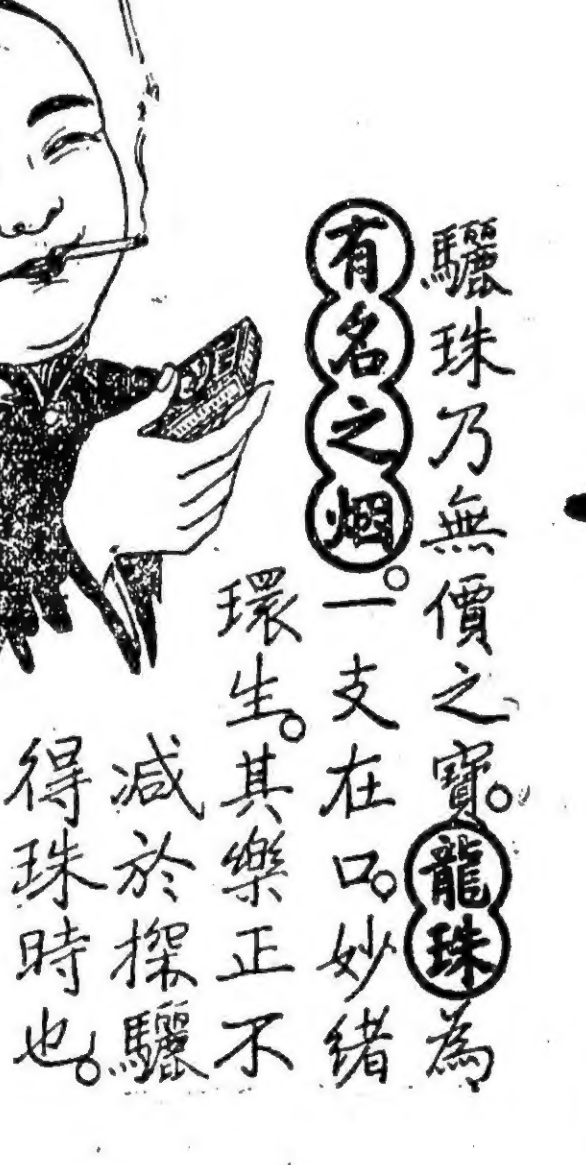 驪珠乃無價之寶。龍珠為
有名之烟。一支在口。妙緒
環生。其樂正不
減於探驪
得珠時也。